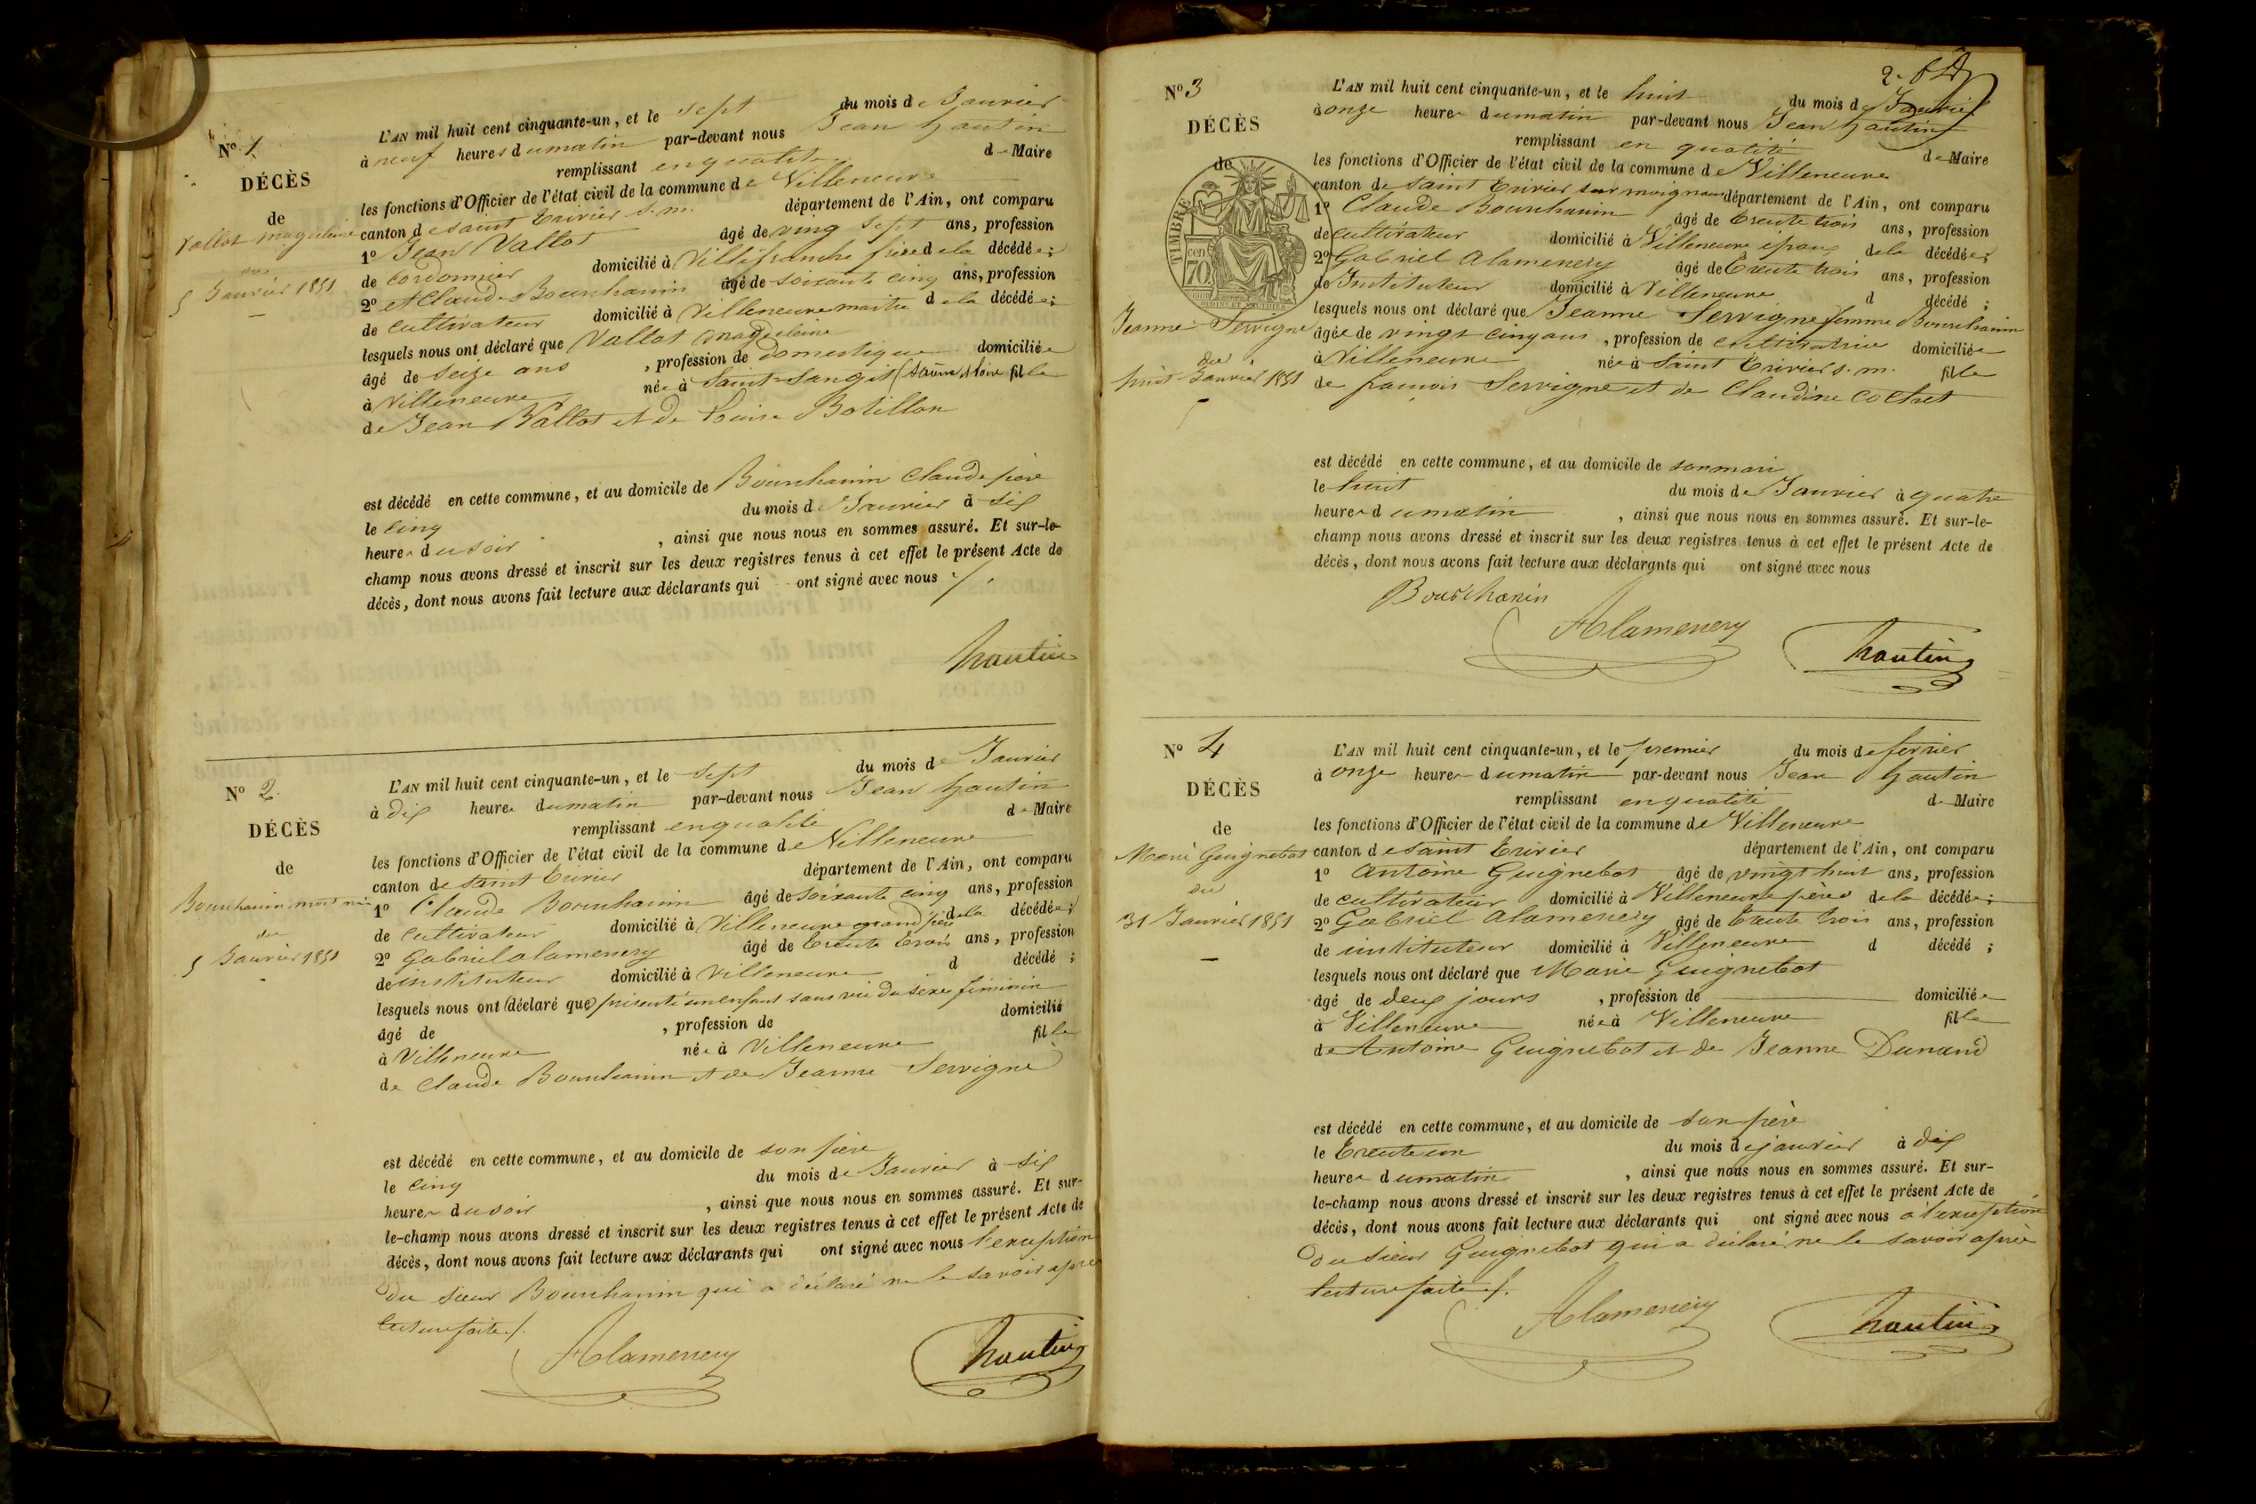 N° 1
DÉCÈS
de
Vallot magdeleine
du
5 Janvier 1851
L'AN mil huit cent cinquante-un, et le sept du mois de Janvier
à neuf heures du matin par-devant nous Jean hautin
remplissant en qualité de Maire
les fonctions d'Officier de l'état civil de la commune de Villeneuve
canton de saint trivier s. m. département de l'Ain, ont comparu
1° Jean Vallot âgé de ving sept ans, profession
de cordonnier domicilié à Villefranche frère de la décédée;
2° et Claude Bourchanin âgé de soixante cinq ans, profession
de cultivateur domicilié à Villeneuve maitre de la décédée;
lesquels nous ont déclaré que Vallot magdeleine
âgé de seize ans, profession de domestique domiciliée
à Villeneuve née à Saint (Saone et Loire fille
de Jean Vallot et de Louise Botillon
est décédé en cette commune, et au domicile de Bourchanin Claude père
le cinq du mois de Janvier à six
heures du soir, ainsi que nous nous en sommes assuré. Et sur-le-
champ nous avons dressé et inscrit sur les deux registres tenus à cet effet le présent Acte de
décès, dont nous avons fait lecture aux déclarants qui ont signé avec nous
hautin
N° 2
DÉCÈS
de
Bourchanin mort né
du
5 Janvier 1851
L'AN mil huit cent cinquante-un, et le sept du mois de Janvier
à dix heures du matin par-devant nous Jean hautin
remplissant en qualité de Maire
les fonctions d'Officier de l'état civil de la commune de Villeneuve
canton de saint trivier département de l'Ain, ont comparu
1° Claude Bourchanin âgé de soixante cinq ans, profession
de cultivateur domicilié à Villeneuve grand père de la décédée;
2° Gabriel alamenery âgé de trente trois ans, profession
de instituteur domicilié à Villeneuve d décédé;
lesquels nous ont (déclaré que) présenté un enfant sans vie du sexe féminin
âgé de , profession de domicilié
à Villeneuve née à Villeneuve fille
de Claude Bourchanin et de Jeanne Servigne
est décédé en cette commune, et au domicile de son père
le cinq du mois de Janvier à six
heures du soir, ainsi que nous nous en sommes assuré. Et sur-
le-champ nous avons dressé et inscrit sur les deux registres tenus à cet effet le présent Acte de
décès, dont nous avons fait lecture aux déclarants qui ont signé avec nous l'exception
du sieur Bourchanin qui a déclaré ne le savoir après
lecture faite /.
Alamenery hautin
N° 3
DÉCÈS
de
TIMBRE
70
Jeanne Servigne
du
huit Janvier 1851
L'AN mil huit cent cinquante-un, et le huit du mois de Janvier
à onze heures du matin par-devant nous Jean hautin
remplissant en qualité de Maire
les fonctions d'Officier de l'état civil de la commune de Villeneuve
canton de saint trivier sur moignans département de l'Ain, ont comparu
1° Claude Bourchanin âgé de trente trois ans, profession
de cultivateur domicilié à Villeneuve époux de la décédée;
2° Gabriel Alamenery âgé de trente trois ans, profession
de Instituteur domicilié à Villeneuve d décédé;
lesquels nous ont déclaré que Jeanne Servigne femme Bourchanin
âgée de vingt cinq ans, profession de cultivatrice domiciliée
à Villeneuve née à Saint trivier s. m. fille
de françois Servigne et de Claudine Cochet
est décédé en cette commune, et au domicile de son mari
le huit du mois de Janvier à quatre
heures du matin, ainsi que nous nous en sommes assuré. Et sur-le-
champ nous avons dressé et inscrit sur les deux registres tenus à cet effet le présent Acte de
décès, dont nous avons fait lecture aux déclarants qui ont signé avec nous
Bourchanin
Alamenery hautin
N° 4
DÉCÈS
de
Marie Guignebot
du
31 Janvier 1851
L'AN mil huit cent cinquante-un, et le premier du mois de fevrier
à onze heures du matin par-devant nous Jean hautin
remplissant en qualité de Maire
les fonctions d'Officier de l'état civil de la commune de Villeneuve
canton de saint trivier département de l'Ain, ont comparu
1° Antoine Guignebot âgé de vingt huit ans, profession
de cultivateur domicilié à Villeneuve père de la décédée;
2° Gabriel alamenery âgé de trente trois ans, profession
de instituteur domicilié à Villeneuve d décédé;
lesquels nous ont déclaré que Marie Guignebot
âgé de deux jours, profession de domiciliée
à Villeneuve née à Villeneuve fille
de Antoine Guignebot et de Jeanne Dunand
est décédé en cette commune, et au domicile de son père
le trente un du mois de janvier à dix
heures du matin, ainsi que nous nous en sommes assuré. Et sur-
le-champ nous avons dressé et inscrit sur les deux registres tenus à cet effet le présent Acte de
décès, dont nous avons fait lecture aux déclarants qui ont signé avec nous à l'exception
du sieur Guignebot qui a déclaré ne le savoir après
lecture faite /.
Alamenery hautin